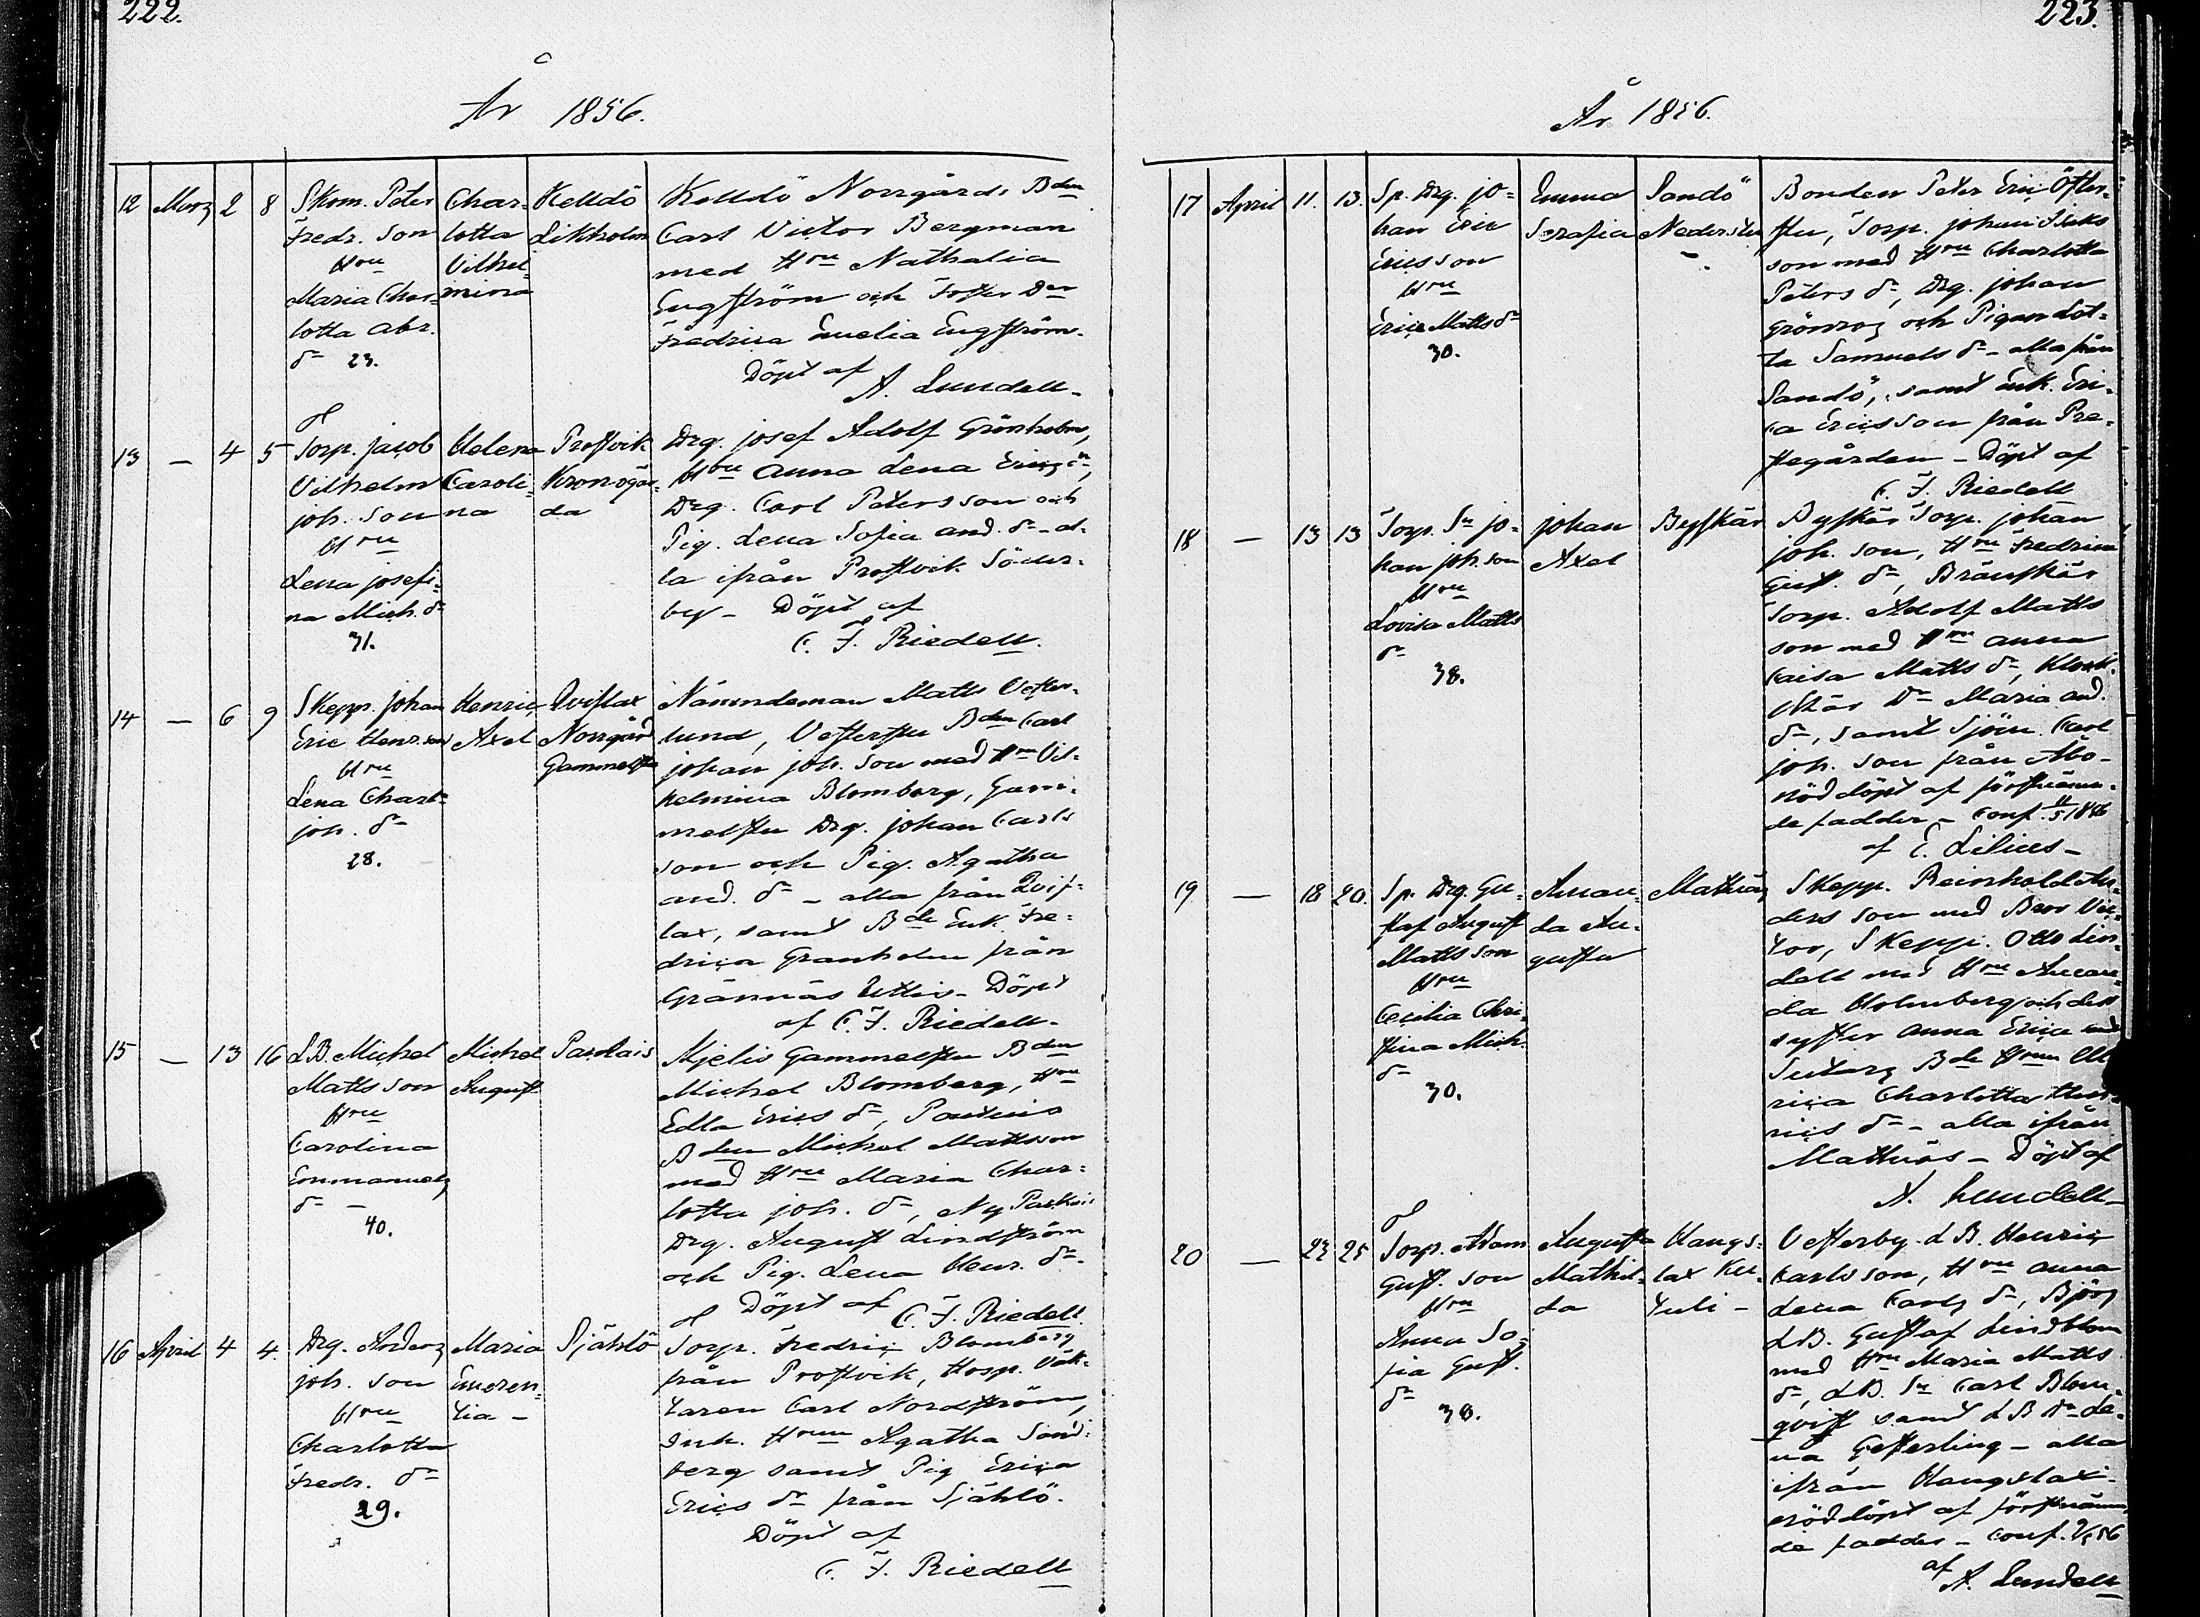 222.
År 1856.
12 Marz 2 8
Skom. Peter
Fredr. son
Hru
Maria Char-
lotta Abr.
dr 23.
Char-
lotta
Vilhel-
mina
Kelldö
Likholm
Kelldö Norrgårds Bden
Carl Victor Bergman
med Hru Nathalia
Engström och Foster Dr
Fredrica Emelia Engström.
Döpt af
A. Lundell.
13 — 4 5
Torp. Jacob
Vilhelm
Joh. son
Hru
Lena Josefi-
na Mich. dr
31.
Helena
Caroli-
na
Prostvik
Kronogår-
da
Drg. Josef Adolf Grönholm,
Hru Anna Lena Erics dr,
Drg. Carl Petersson och
Pig. Lena Sofia And. dr - al-
la ifrån Prostvik Söder-
by - Döpt af
C. F. Riedell.
14 — 6 9
Skepps. Johan
Eric Henr. son
Hru
Lena Charl.
Joh. dr
28.
Henric
Axel
Qvislax
Norrgård
Gammelstu
Nämndeman Matts Vester-
lund, Vesterstu Bden Carl
Johan Joh. son med Hru Vil-
helmina Blomberg, Gam-
melstu Drg. Johan Carls
son och Pig. Agatha
And. dr - alla från Qvis-
lax, samt Bde Enk. Fre-
drica Granholm från
Grännäs Uttis - Döpt
af C. F. Riedell -
15 — 13 16
L.B. Michel
Matts son
Hru
Carolina
Emmanuels
dr -
40.
Michel
August
Parkais
Mjelis Gammelstu Bden
Michel Blomberg, Hru
Edla Erics dr,
Bden Michel Mattsson
med Hru Maria Char-
lotta Joh. dr, Ny Parkais
Drg. August Lindström
och Pig. Lena Henr. dr.
Döpt af C. F. Riedell.
16 April 4 4.
Drg. Anders
Joh. son
Hru
Charlotta
Fredr. dr
29.
Maria
Emeren-
tia -
Själö
Torp. Fredric Blomberg
från Prostvik, Hosp. Väk-
taren Carl Nordström,
Inh. Hrun Agatha Sand-
berg samt Pig Erica
Erics dr från Själö.
Döpt af
C. F. Riedell
223.
År 1856.
17 April 11. 13.
Sp. Drg. Jo-
han Eric
Ericsson
Hru
Erica Matts dr
30.
Emma
Serafia
Sandö
Nederstu
-
Bonden Peter Eric Öfver-
stu, Torp. Johan Isaks
son med Hru Charlotta
Peters dr, Drg. Johan
Grönroos och Pigan Lot-
ta Samuels dr - alla från
Sandö, samt Enk. Eri-
ca Ericsson från Pre-
stegården - Döpt af
C. F. Riedell
18 — 13 13
Torp. Sn Jo-
han Joh. son
Hru
Lovisa Matts
dr
38.
Johan
Axel
Byskär
Byskär Torp. Johan
Joh. son, Hru Fredrica
Gust. dr, Bränskär
Torp. Adolf Matts
son med Hru Anna
Caisa Matts dr,
skär Dr Maria And.
dr, samt Sjöm. Carl
Joh. son från Åbo -
nöddöpt af förstnämn-
de fadder - Conf. 11/5 1856
af E. Lilius -
19 — 18 20.
Sp. Drg. Gu-
staf August
Matts son
Hru
Cecilia Chri-
stina Mich.
dr
30.
Aman-
da Au-
gusta
Mattnäs
Skepp. Reinhold An-
ders son med Bror Vic-
tor, Skepp. Otto Lin-
dell med Hru Aman-
da Holmberg och dess
syster Anna Erica med
Bde Hrun Ul-
rica Charlotta Hen-
rics dr - alla ifrån
Mattnäs - Döpt af
A. Lundell -
20 — 23 25
Torp. Adam
Gust. son
Hru
Anna So-
fia Gust.
dr
38.
Augusta
Mathil-
da
Haugs-
lax Ku-
tuli -
Vesterby L.B. Henric
Carlsson, Hru Anna
Lena Carls dr, Björs
L.B. Gustaf Lindblom
med Hru Maria Matts
dr, L.B. Sn Carl Blom-
qvist samt L B Dr Le-
na Gesterling - alla
ifrån Haugslax -
nöddöpt af förstnämn
de fadder - Conf.
af A. Lundell